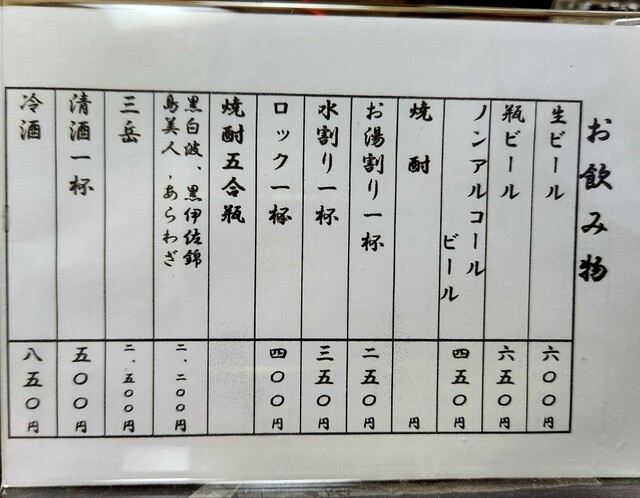 お飲み物
生ビール 六〇〇円
瓶ビール 六五〇円
ノンアルコール
ビール 四五〇円
焼酎 円
お湯割り一杯 二五〇円
水割り一杯 三五〇円
ロック一杯 四〇〇円
焼酎五合瓶
黒白波、黒伊佐錦
島美人、あらわざ 二、二〇〇円
三岳 二、五〇〇円
清酒一杯 五〇〇円
冷酒 八五〇円